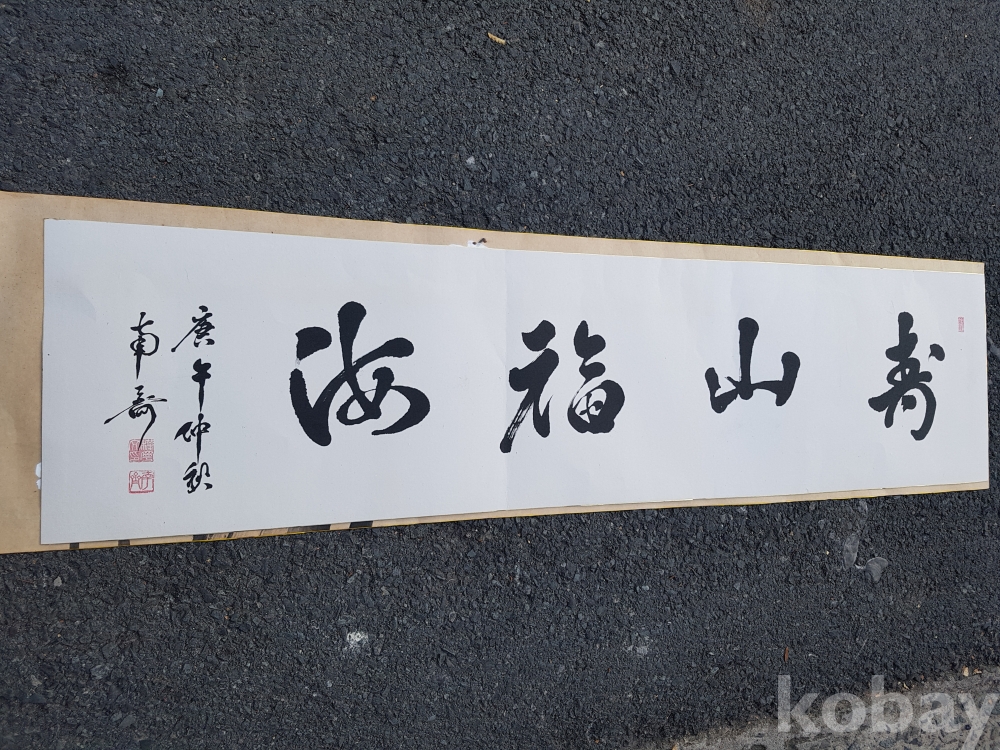 寿山福海
庚午仲秋
南
kobay